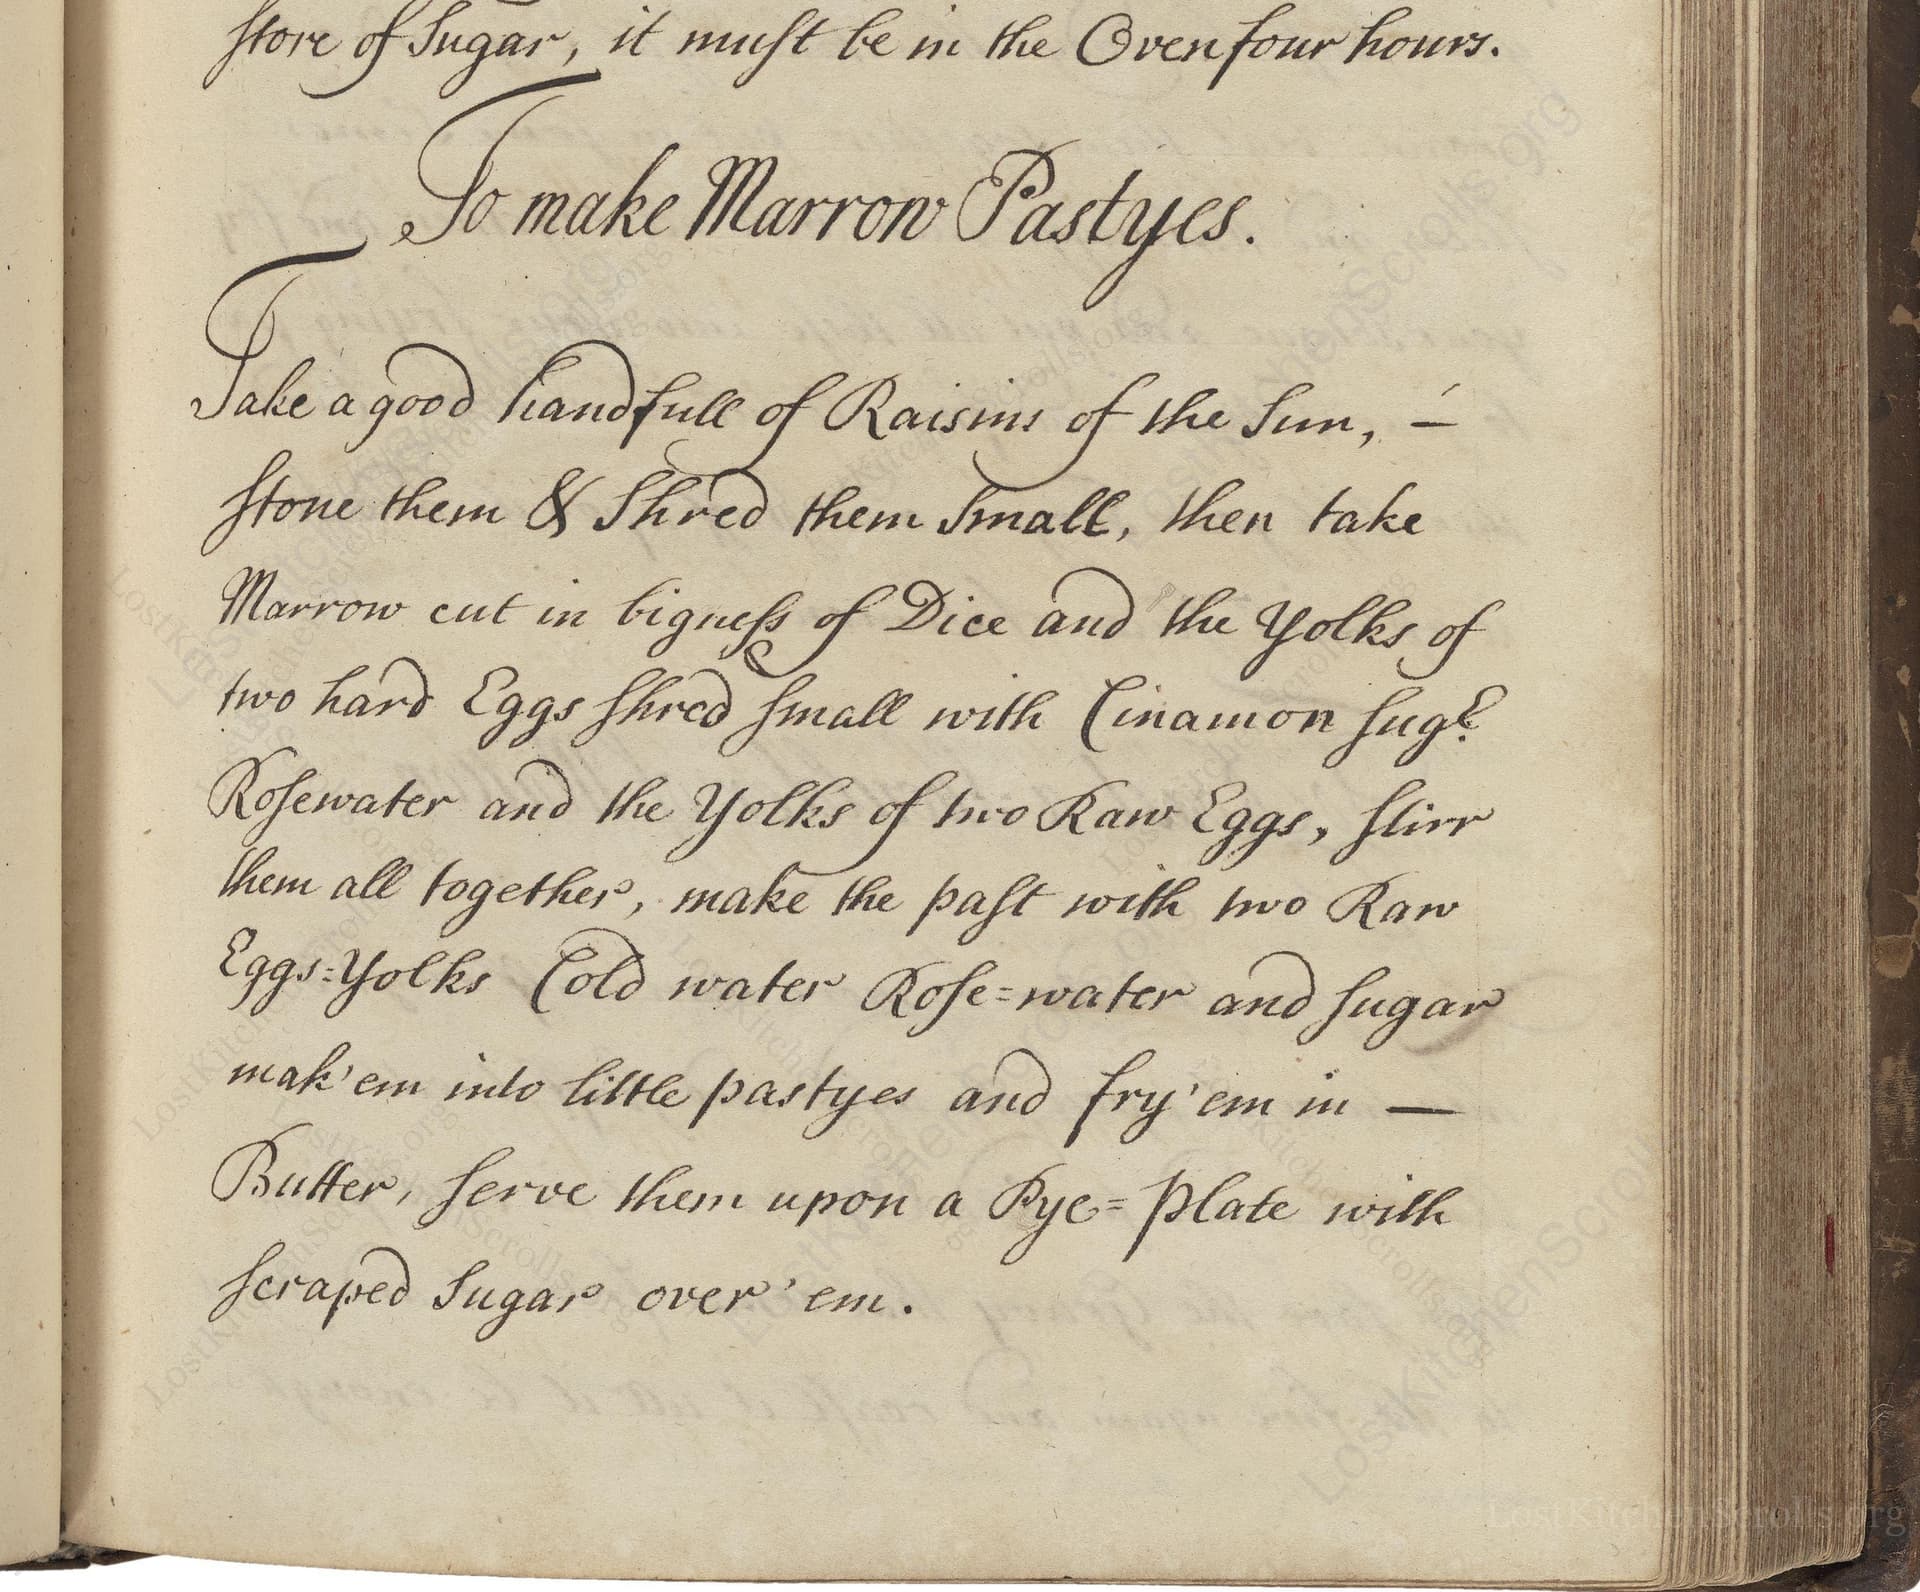 store of Sugar, it must be in the Oven four hours.
To make Marrow Pastyes.
Take a good handfull of Raisins of the Sun, —
stone them & Shred them Small, then take
Marrow cut in bigness of Dice and the Yolks of
two hard Eggs shred small with Cinamon sugr.
Rosewater and the Yolks of two Raw Eggs, stirr
them all together, make the past with two Raw
Eggs=Yolks Cold water Rose=water and sugar
mak'em into little pastyes and fry'em in —
Butter, serve them upon a Pye=plate with
scraped Sugar over'em.
LostKitchenScrolls.org